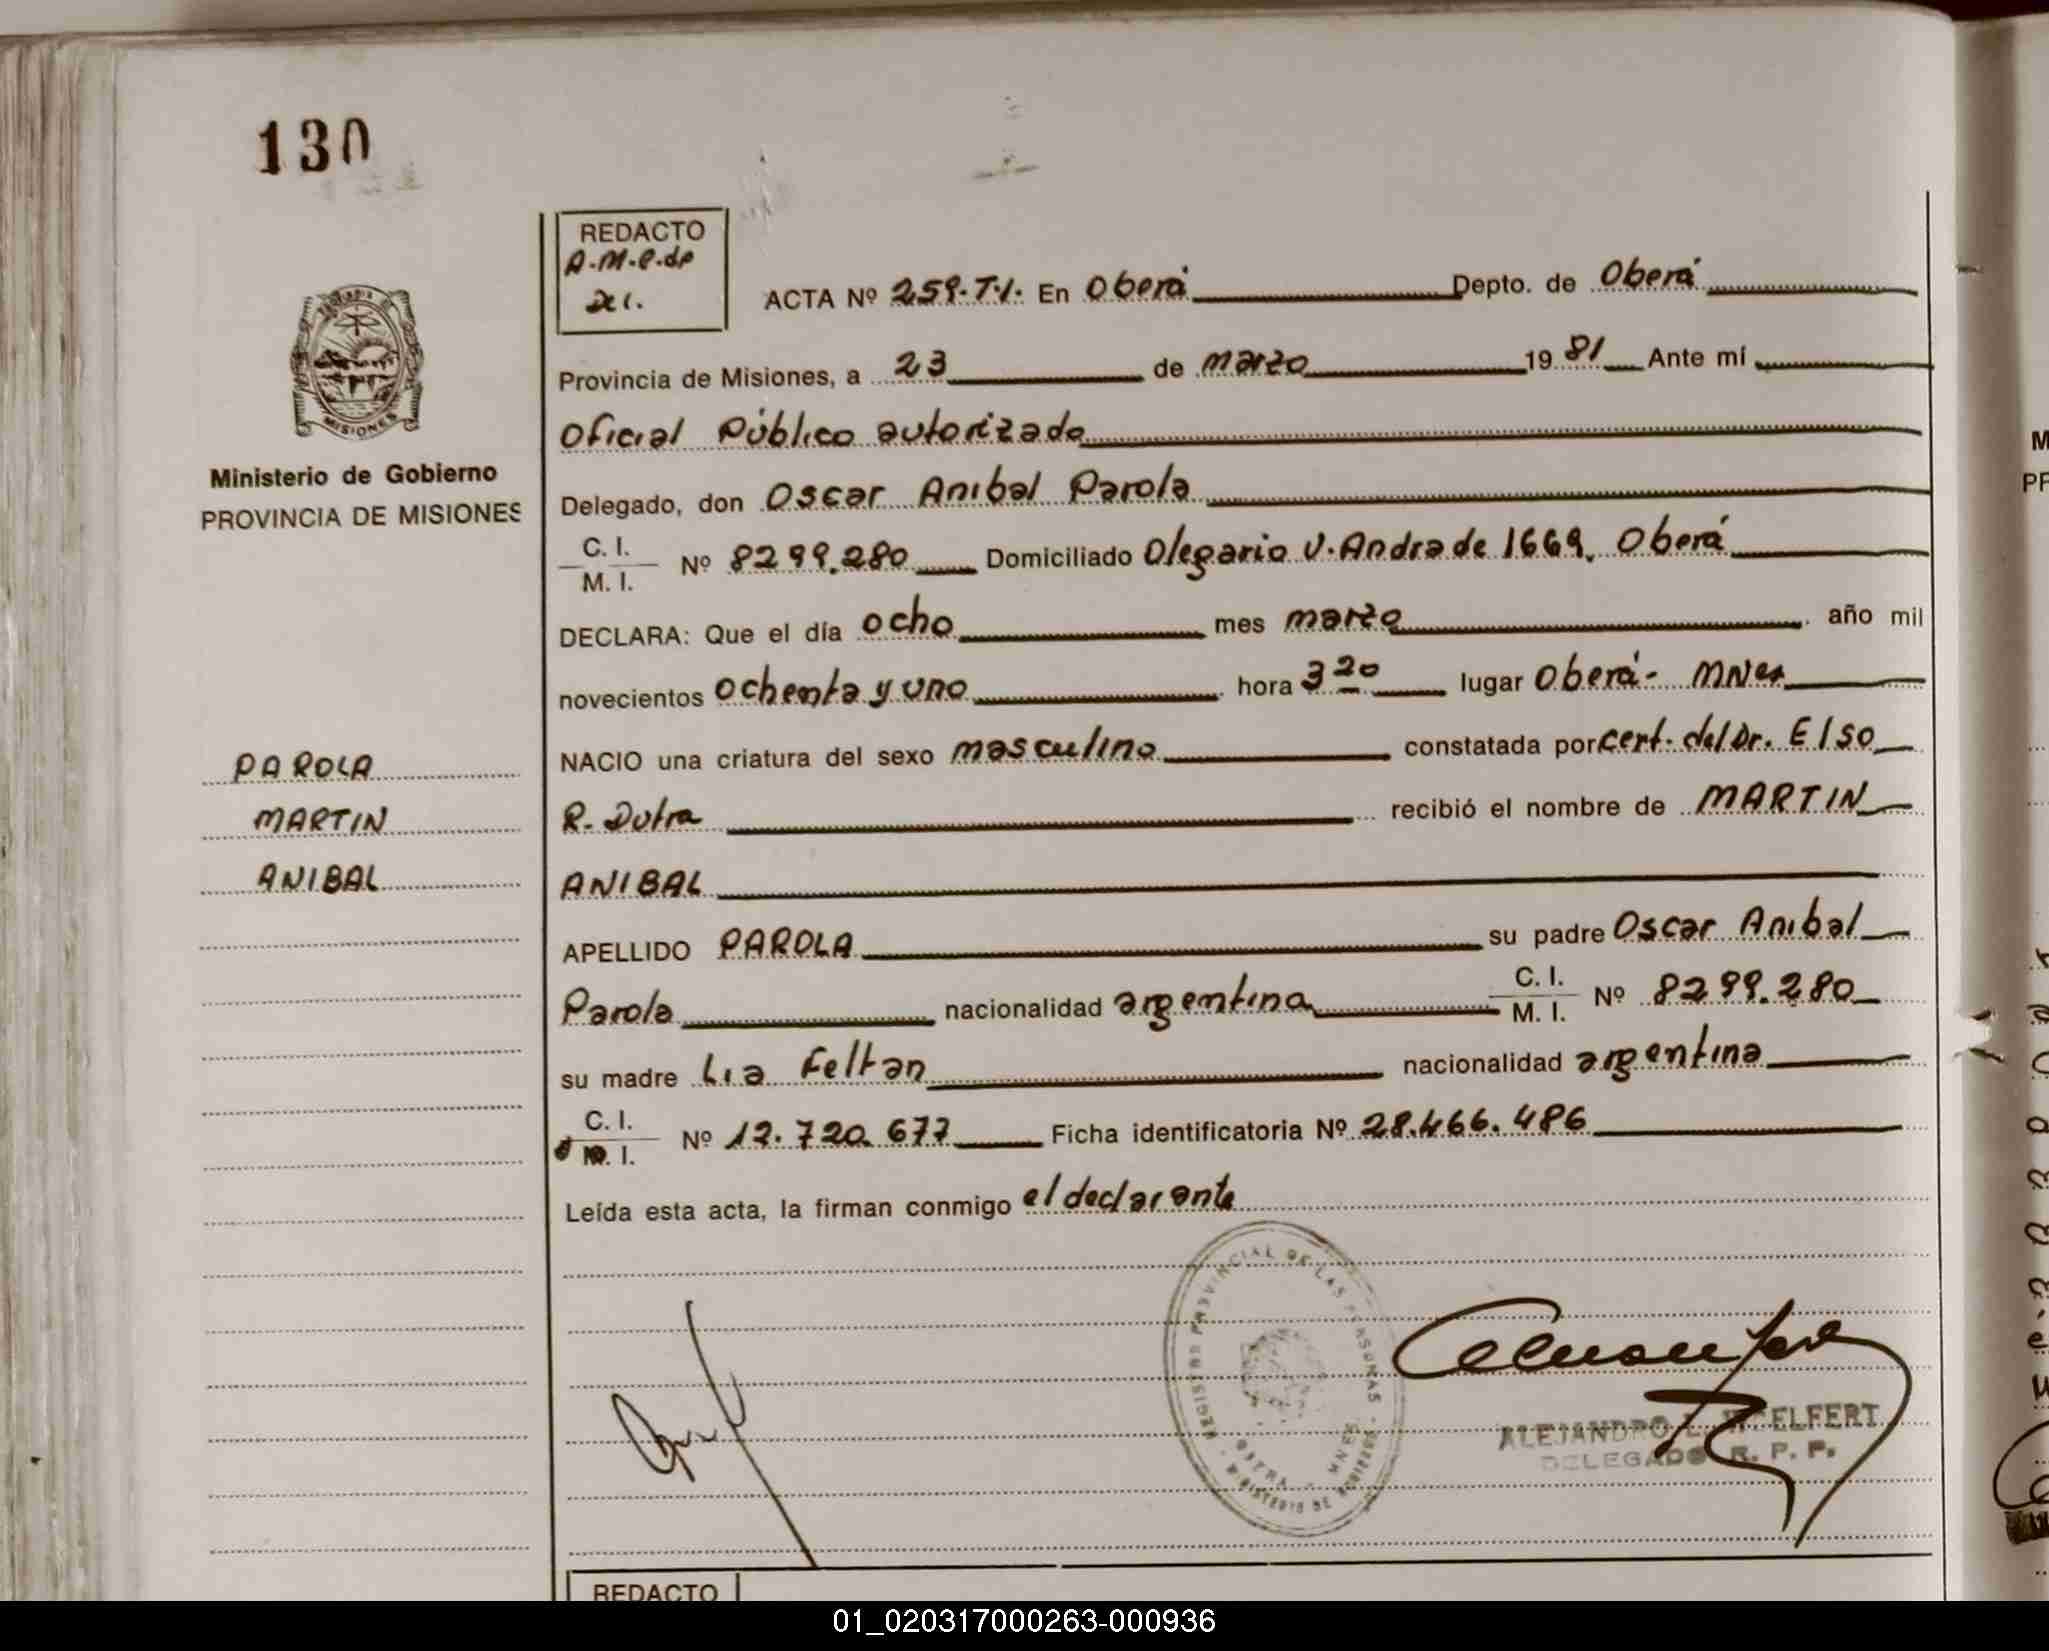 130
REDACTO
A.M.P.de
Del.
ACTA Nº 259.T.1. En Oberá Depto. de Oberá
Provincia de Misiones, a 23 de marzo 1981 Ante mí
Oficial Público autorizado
MISIONES
Ministerio de Gobierno
PROVINCIA DE MISIONES
Delegado, don Oscar Anibal Parola
C. I.
M. I. Nº 8299.280 Domiciliado Olegario V. Andrade 1669. Oberá
DECLARA: Que el día ocho mes marzo año mil
novecientos ochenta y uno hora 3 20 lugar Oberá - MNes
PAROLA
MARTIN
ANIBAL
NACIO una criatura del sexo masculino constatada por cert. del Dr. Elso
R. Dutra recibió el nombre de MARTIN
ANIBAL
APELLIDO PAROLA su padre Oscar Anibal
Parola nacionalidad argentina C. I.
M. I. Nº 8299.280
su madre Lia Feltan nacionalidad argentina
C. I.
M. I. Nº 12.720.677 Ficha identificatoria Nº 28.466.486
Leída esta acta, la firman conmigo el declarante
REGISTRO PROVINCIAL DE LAS PERSONAS
OBERA - MNES
MINISTERIO DE GOBIERNO
ALEJANDRO L. WELFERT
DELEGADO R. P. P.
REDACTO
01_020317000263-000936